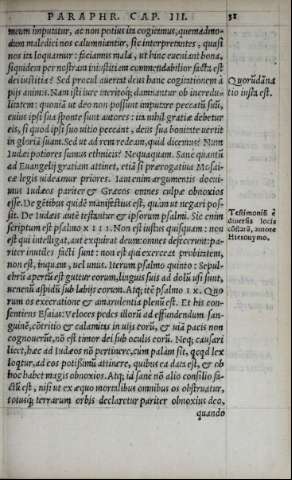 PARAPHR. CAP. III. 31
meum imputatur, ac non potius ita cogitimus, quemadmo-
dum maledici nos calumniantur, sic interpretantes, quasi
nos ita loquamur: faciamus mala, ut hinc eueniant bona,
siquidem per nostram iniustitiam commendabilior facta est
dei iustitia? Sed procul auerat deus hanc cogitationem à
pijs animis. Nam isti iure meritoq; damnantur ob incredu-
litatem: quoniã ut deo non possunt imputare peccatũ suũ,
cuius ipsi sua sponte sunt autores: ita nihil gratiæ debetur
eis, si quod ipsi suo uitio peccant, deus sua bonitate uertit
in gloriã suam. Sed ut ad rem redeam, quid dicemus? Num
Iudæi potiores sumus ethnicis? Nequaquam. Sanè quantũ
ad Euangelij gratiam attinet, etiã si prærogatiua Mosai-
cæ legis uideamur priores. Iam enim argumentis docui-
mus Iudæos pariter & Græcos omnes culpæ obnoxios
esse. De gētibus quidē manifestius est, quàm ut negari pos-
sit. De Iudæis autē testantur & ipsorum psalmi. Sic enim
scriptum est psalmo XIII. Non est iustus quisquam: non
est qui intelligat, aut exquirat deum: omnes defecerunt: pa-
riter inutiles facti sunt: non est qui exerceat probitatem,
non est, inquam, uel unus. Iterum psalmo quinto: Sepul-
chrũ apertũ est guttur eorum, linguis suis ad dolũ usi sunt,
uenenũ aspidũ sub labijs eorum. Atq; itē psalmo IX. Quo
rum os execratione & amarulentia plenũ est. Et his con-
sentiens Esaias: Veloces pedes illorũ ad effundendum san-
guinē, cõtritio & calamitas in uijs eorũ, & uiã pacis non
cognouerũt, nõ est timor dei sub oculis eorũ. Neq; causari
licet, hæc ad Iudæos nõ pertinere, cùm palàm sit, qcqd lex
loqtur, ad eos potissimũ attinere, quibus ea data est, & ob
hoc habet magis obnoxios. Atq; id sanè nõ alio consilio fa-
ctũ est, nisi ut ex æquo mortalibus omnibus os obstruatur,
totusq; terrarum orbis declaretur pariter obnoxius deo,
quando
Quorũdã na
tio iusta est.
Testimoniũ è
diuersis locis
cõflatũ, autore
Hieronymo.